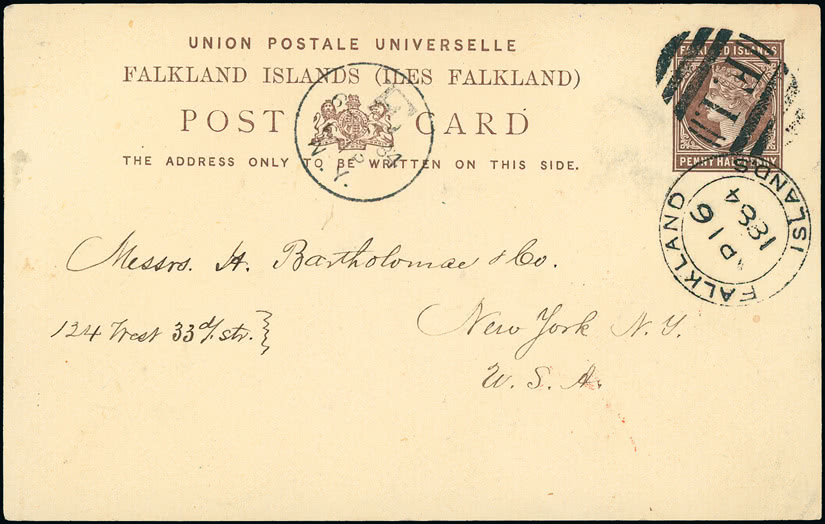 UNION POSTALE UNIVERSELLE
FALKLAND ISLANDS (ILES FALKLAND)
POST CARD
THE ADDRESS ONLY TO BE WRITTEN ON THIS SIDE.
FALKLAND ISLANDS
F.I.
PENNY HALFPENNY
FALKLAND ISLANDS
16
1884
N.Y.
Messrs. H. Bartholomae & Co.
124 West 33d/. str.
New York N.Y.
U. S. A.